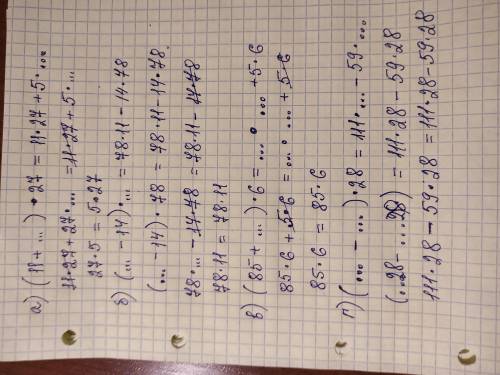 а) (11 + ...) • 27 = 11 • 27 + 5 • ...
11•27 + 27 • ... = 11•27 + 5 • ...
27 • 5 = 5 • 27
б) (... - 14) • ... = 78 • 11 - 14 • 78
(... - 14) • 78 = 78 • 11 - 14 • 78.
78 • ... - 14•78 = 78•11 - 14•78
78 • 11 = 78 • 11
в) (85 + ...) • 6 = ... • ... + 5 • 6
85 • 6 + 5•6 = ... • ... + 5•6
85 • 6 = 85 • 6
г) (... - ...) • 28 = 111 • ... - 59 • ...
(...•28 - ...•28) = 111 • 28 - 59 • 28
111 • 28 - 59 • 28 = 111 • 28 - 59 • 28